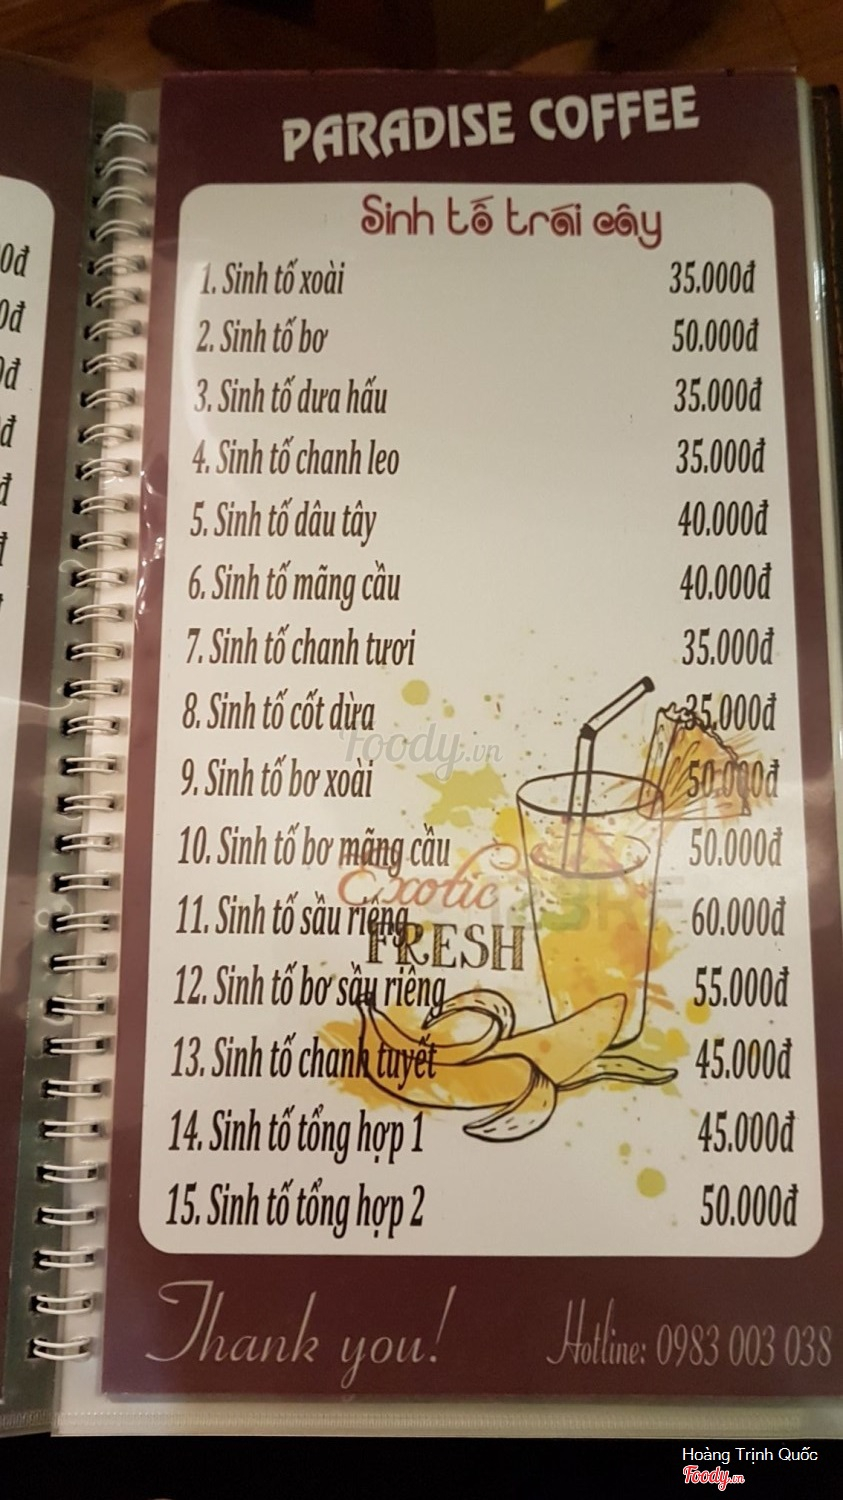 PARADISE COFFEE
Sinh tố trái cây
1. Sinh tố xoài 35.000đ
2. Sinh tố bơ 50.000đ
3. Sinh tố dưa hấu 35.000đ
4. Sinh tố chanh leo 35.000đ
5. Sinh tố dâu tây 40.000đ
6. Sinh tố mãng cầu 40.000đ
7. Sinh tố chanh tươi 35.000đ
8. Sinh tố cốt dừa 35.000đ
9. Sinh tố bơ xoài 50.000đ
10. Sinh tố bơ mãng cầu 50.000đ
11. Sinh tố sầu riêng 60.000đ
12. Sinh tố bơ sầu riêng 55.000đ
13. Sinh tố chanh tuyết 45.000đ
14. Sinh tố tổng hợp 1 45.000đ
15. Sinh tố tổng hợp 2 50.000đ
Foody.vn
Exotic
FRESH
Thank you! Hotline: 0983 003 038
Hoàng Trịnh Quốc
Foody.vn